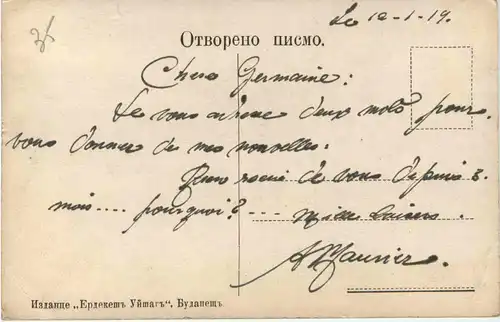 Le 12-1-19.
Отворено писмо.
Chere Germaine:
Je vous adresse deux mots pour
vous donner de mes nouvelles.
Rien recu de vous depuis 3
mois.... pourquoi? --- Mille baisers.
Издание „Ердекешъ Уйшагъ“. Будапешъ